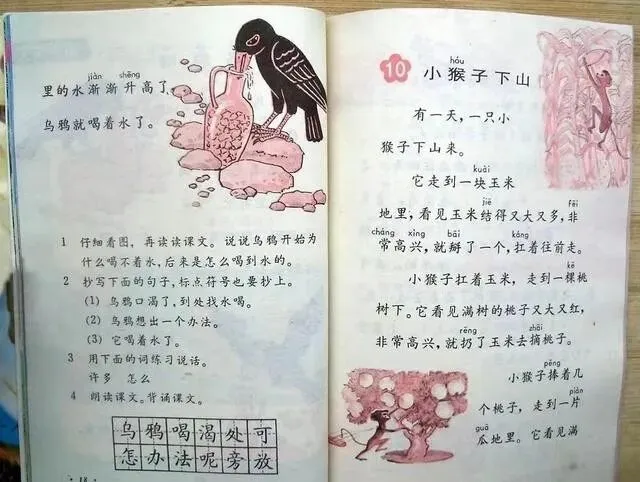 jiàn shēng
里的水渐渐升高了
乌鸦就喝着水了。
1 仔细看图，再读读课文。说说乌鸦开始为
什么喝不着水，后来是怎么喝到水的。
2 抄写下面的句子，标点符号也要抄上。
(1) 乌鸦口渴了，到处找水喝。
(2) 乌鸦想出一个办法。
(3) 它喝着水了。
3 用下面的词练习说话。
许多 怎么
4 朗读课文。背诵课文。
乌鸦喝渴处可
怎办法呢旁放
· 18 ·
hóu
10 小猴子下山
有一天，一只小
猴子下山来。
kuài
它走到一块玉米
jiē fēi
地里，看见玉米结得又大又多，非
cháng xìng bāi káng
常高兴，就掰了一个，扛着往前走。
kē
小猴子扛着玉米，走到一棵桃
树下。它看见满树的桃子又大又红，
rēng zhāi
非常高兴，就扔了玉米去摘桃子。
pěng
小猴子捧着几
piàn
个桃子，走到一片
guā
瓜地里。它看见满